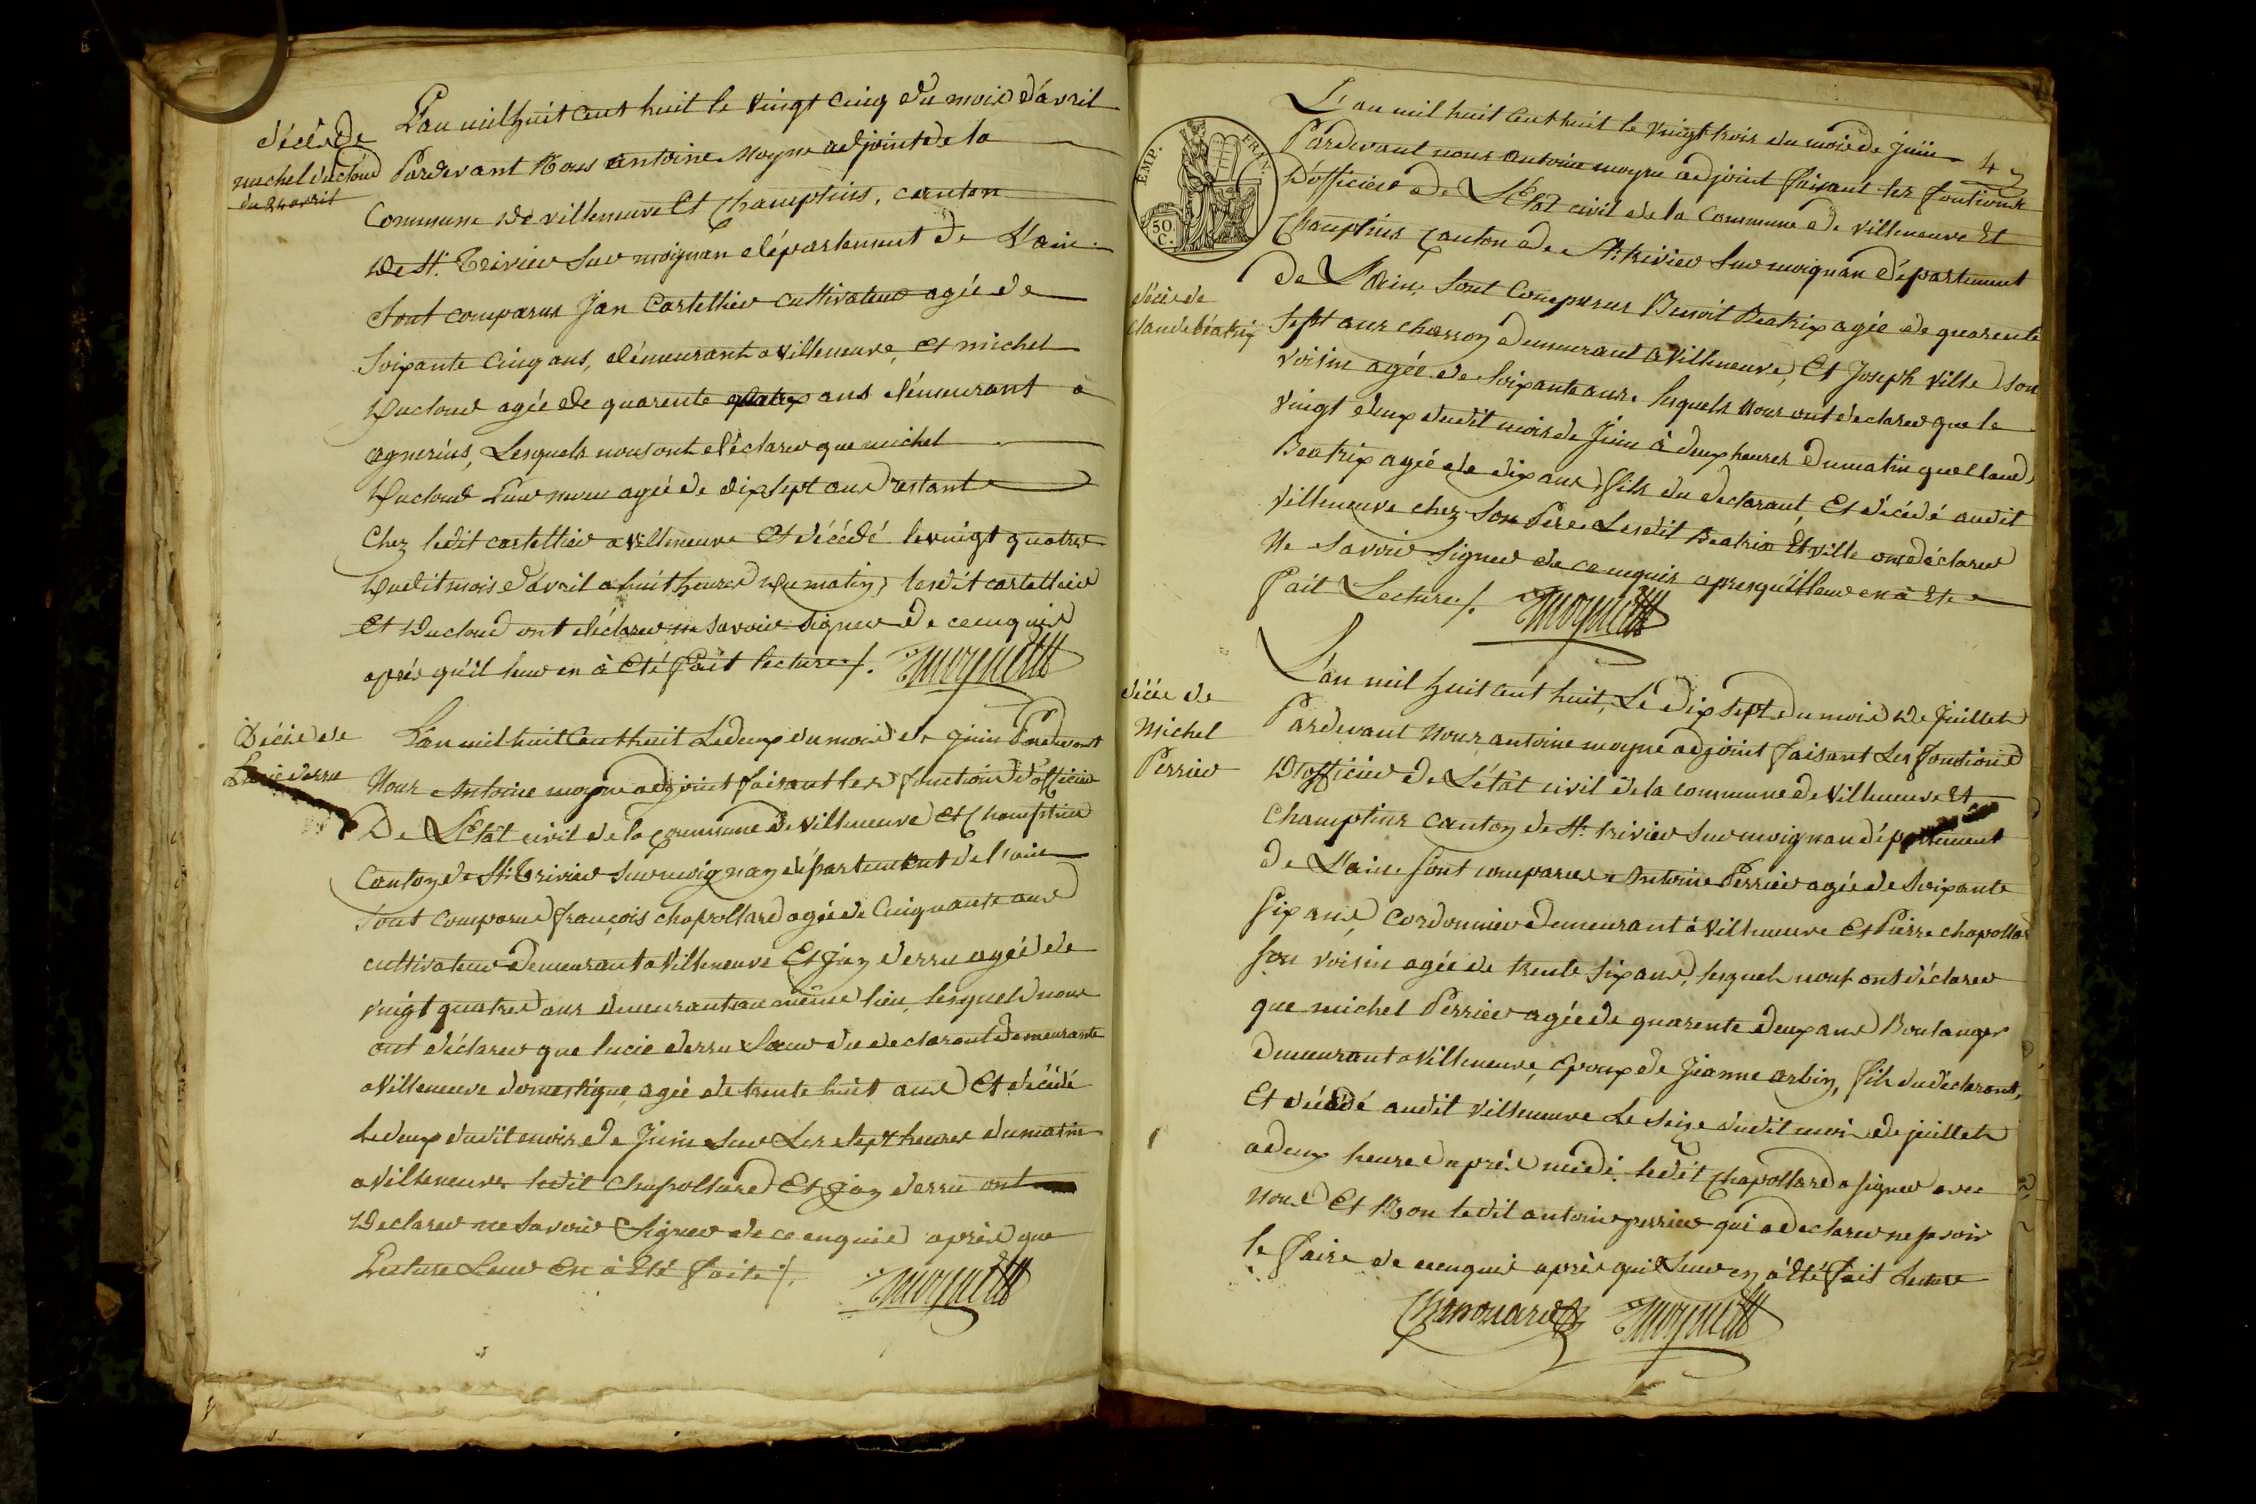 décès de
michel ducloud
du 24 avril
L'an mil huit cent huit le vingt cinq du mois d'avril
Pardevant Nous antoine moyne adjoint de la
Commune de villeneuve Et Champtins, canton
De St. Trivier sur moignan département de L'ain
Sont comparus Jan Cartellier cultivateur agée de
Soixante Cinq ans, démeurant a villeneuve, et michel
Ducloud agée de quarente ans démeurant à
agnerins, Lesquels nous ont déclarer que michel
Ducloud Leur neveu agée de dix sept ans restant
Chez ledit cartellier a villeneuve Et décédé le vingt quatre
Dudit mois d'avril a huit heures du matin, lesdit cartellier
Et Ducloud ont déclarer ne savoir signer De ce enquis
après qu'il leur en à été fait lecture /. moyne
Décès de
Lucie derru
L'an mil huit cent huit Le deux du mois de juin Pardevant
Nous Antoine moyne adjoint faisant les fonctions d'officier
De L'Etât civil de la commune de villeneuve et Champtins
Canton de St. Trivier sur moignan département de l'ain
Sont comparus françois chapollard agée de Cinquante ans
cultivateur demeurant a villeneuve Et jan derru agée de
vingt quatre ans demeurant au même lieu, lesquels nous
ont déclarer que lucie derru Sœur du declarant demeurante
a villeneuve domestique, agée de trente huit ans Et décédé
Le deux dudit mois de Juin sur Les sept heures du matin
a villeneuve ledit chapollard Et jan derru ont
Declarer ne savoir signer de ce enquis après que
Lecture Leur en à Eté faite /. moyne
EMP. FRAN.
50 C.
4
décès de
claude béatrix
L'an mil huit cent huit le vingt trois du mois de juin
Pardevant nous antoine moyne adjoint faisant les fontions
D'officier de L'Etât civil de la commune de villeneuve Et
Champtins canton de St. trivier sur moignan département
de L'ain, Sont Comparus Benoit Beatrix agée de quarente
sept ans charron demeurant a villeneuve, Et Joseph ville son
voisin agée de soixante ans. lesquels nous ont declarer que le
vingt deux dudit mois de Juin à deux heures du matin que claude
Beatrix agée de dix ans, fils du declarant, Et décédé audit
villeneuve chez son Pere, Lesdit Beatrix Et ville ont déclarer
Ne savoir signer de ce enquis apres qu'il leur en à Eté
fait Lecture /. moyne
décès de
Michel
Perrier
L'an mil huit cent huit, Le dix sept du mois de juillet
Pardevant nous antoine moyne adjoint faisant Les fonctions
D'officier de L'état civil de la commune de villeneuve Et
Champtins canton de St. trivier sur moignan département
de L'ain, sont comparus Antoine Perrier agée de soixante
six ans, cordonnier demeurant à villeneuve Et Pierre chapollard
son voisin agée de trente six ans, lesquels nous ont déclarer
que michel Perrier agée de quarente deux ans Boulanger
demeurant a villeneuve, epoux de jeanne arbin, fils du declarant,
Et décédé audit villeneuve Le seize dudit mois de juillet
a deux heures après midi. ledit Chapollard a signer avec
Nous Et Non ledit antoine perrier qui a declarer ne savoir
le faire de ce enquis après qu'il leur en à été fait Lecture
moyne